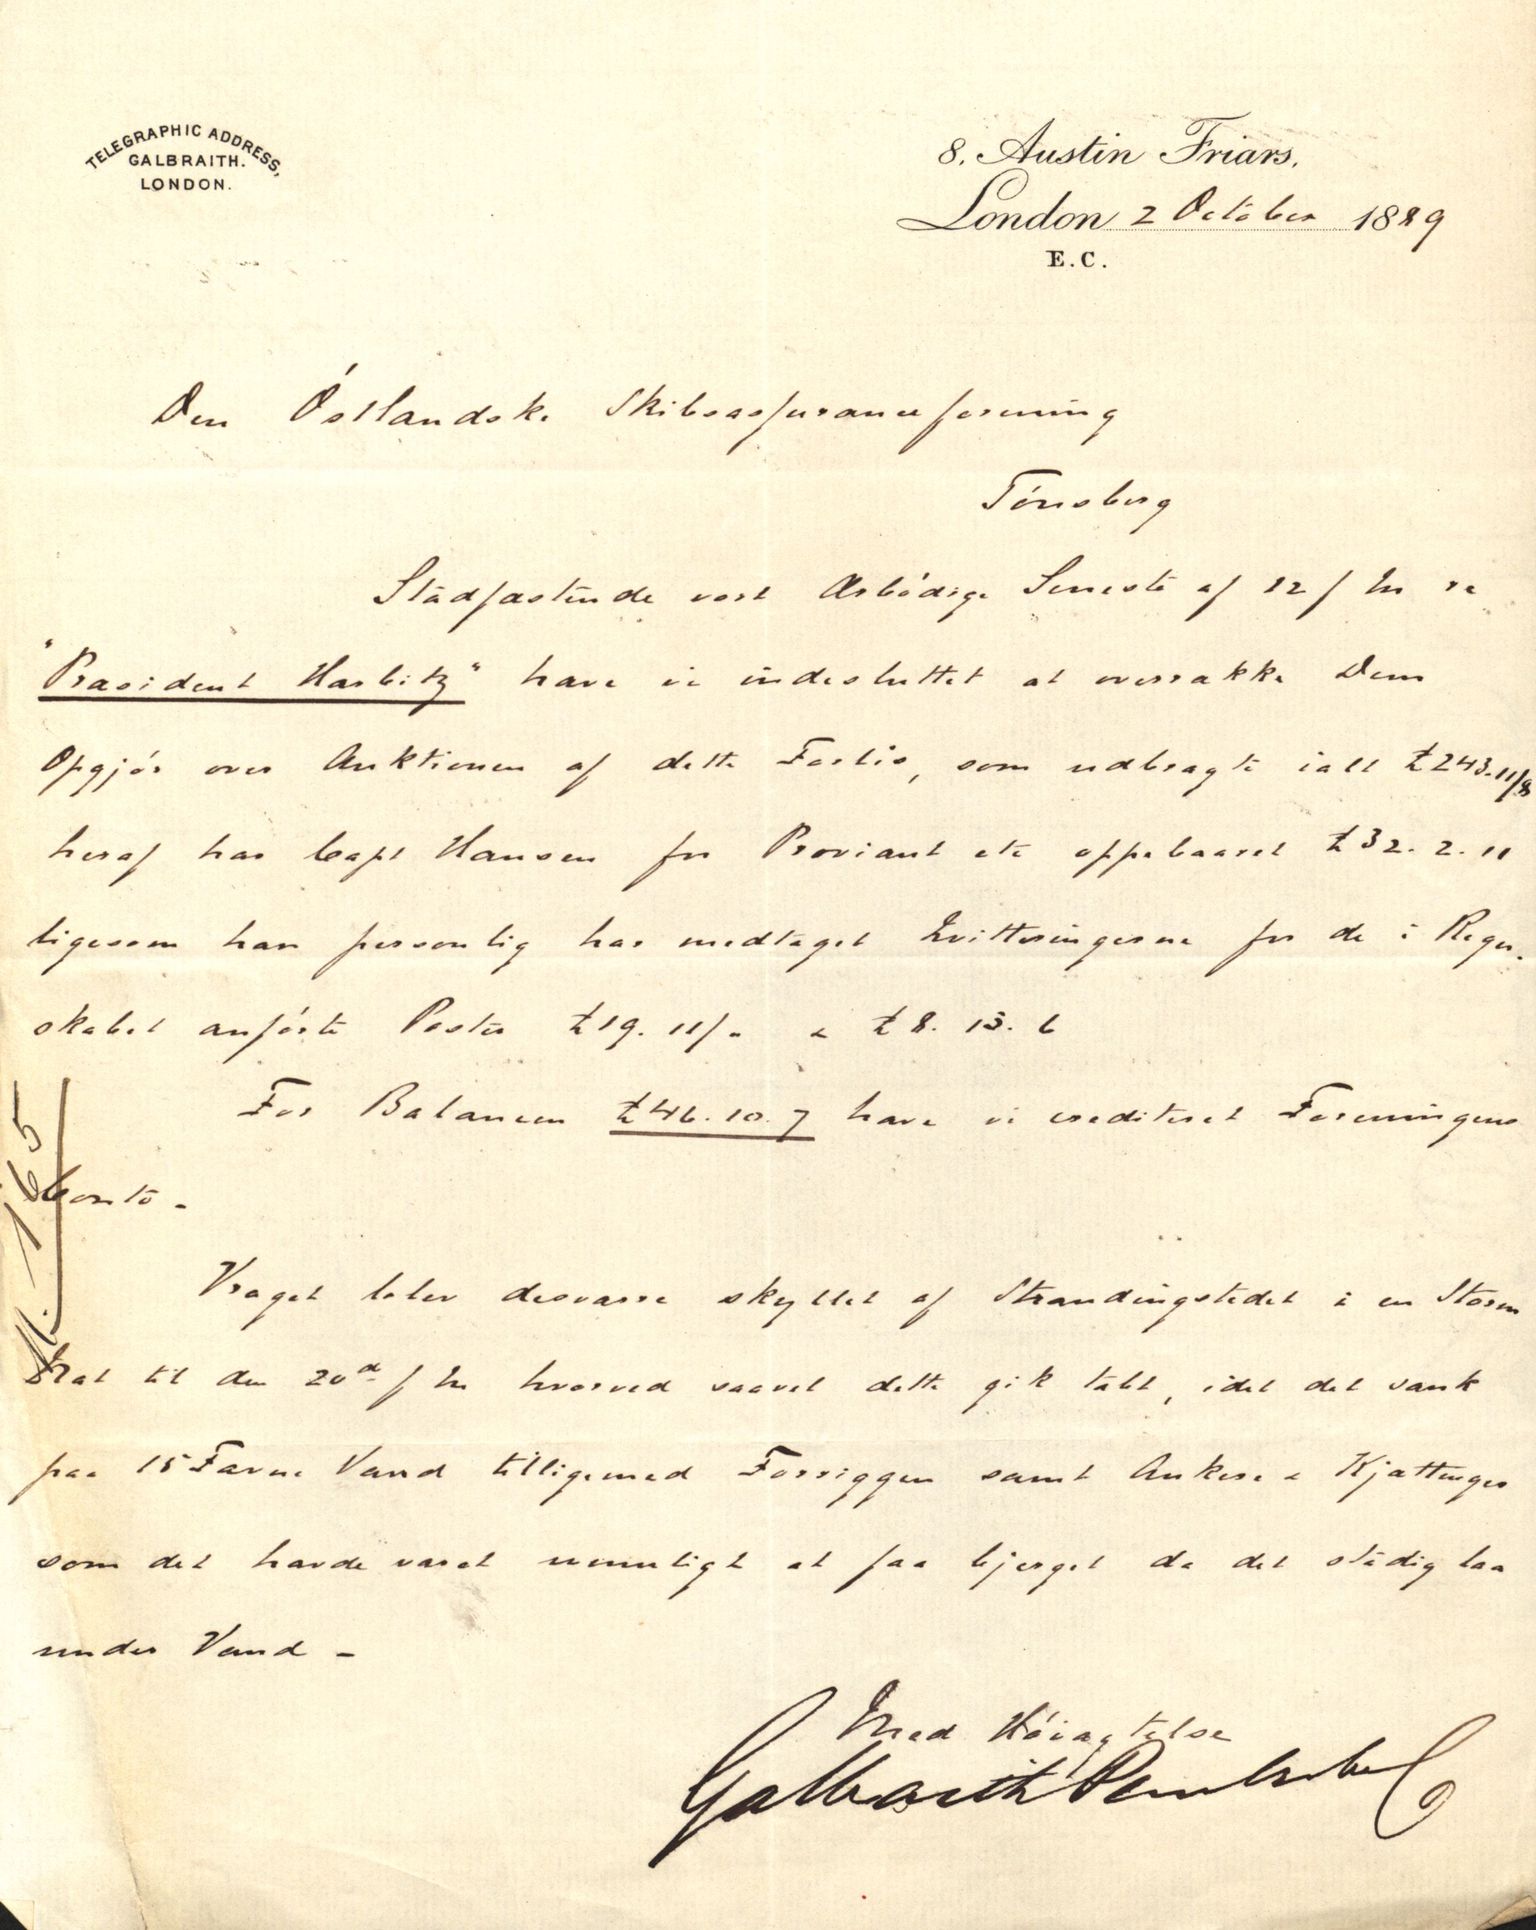 TELEGRAPHIC ADDRESS,
GALBRAITH.
LONDON.
8. Austin Friars.
London 2 October 1889
E.C.
Den Östlandske Skibsassuranceforening
Tönsberg
Stadfæstende vort Ærbödige Seneste af 12 f M re
"Præsident Harbitz" have vi indesluttet at overrække Dem
Opgjör over Auktionen af dette Forlis, som udbragte ialt £243.11/8
heraf har Capt Hansen for Proviant etc oppebaaret £32.2.11
ligesom han personlig har medtaget Qvitteringerne for de i Regn-
skabet anförte Poster £19.11/- & £8.13.6
For Balancen £46.10.7 have vi crediteret Foreningens
Conto -
Vraget blev desværre skyllet af Strandingstedet i en Storm
Nat til den 20de f M hvorved saavel dette gik tabt, idet det sank
paa 15 Favne Vand tilligemed Forriggen samt Ankere & Kjættinger
som det havde været umuligt at faa bjerget da det stadig laa
under Vand -
Med Höiagtelse
Galbraith Pembroke & Co
165